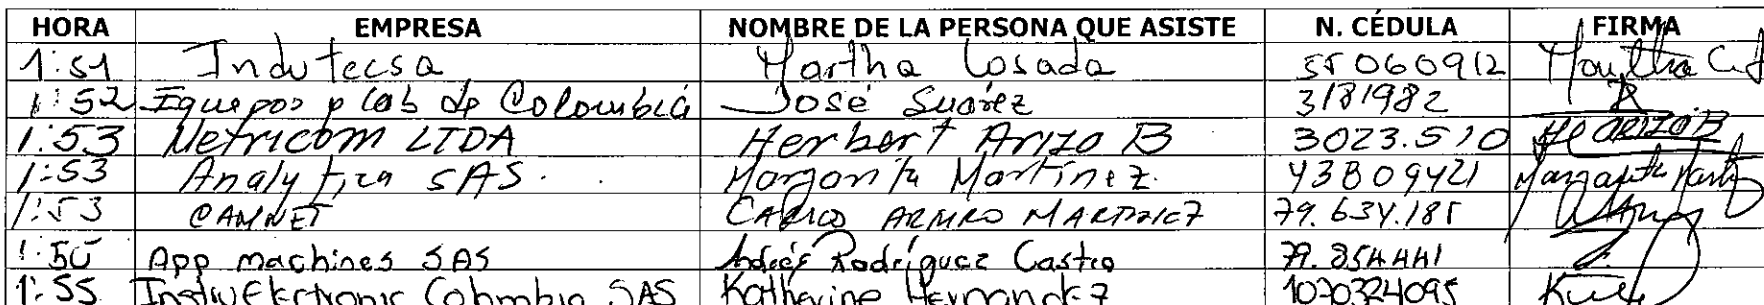 HORA EMPRESA NOMBRE DE LA PERSONA QUE ASISTE N. CÉDULA FIRMA
1:51 Indutecsa Martha Losada 55060912 Martha C.
1:52 Equipos y lab de Colombia José Suárez 3181982
1:53 Metricom LTDA Herbert Ariza B 3023.510 H ARIZA B
1:53 Analytica SAS. Margarita Martínez. 43809421 Margarita
1:53 CAMNET CARLOS ARTURO MARTINEZ 79.634.185
App machines SAS Andrés Rodríguez Castro 79.854441
1:55 InstruElectronic Colombia SAS Katherine Hernandez 1070324095